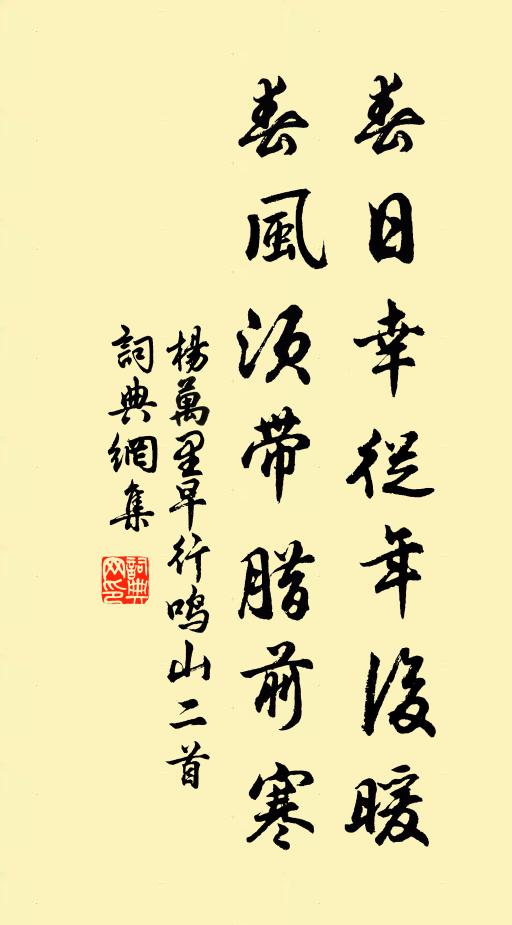 春日幸從年後暖
春風須帶腊前寒
楊萬里早行鳴山二首
詞典網集
詞典
网印